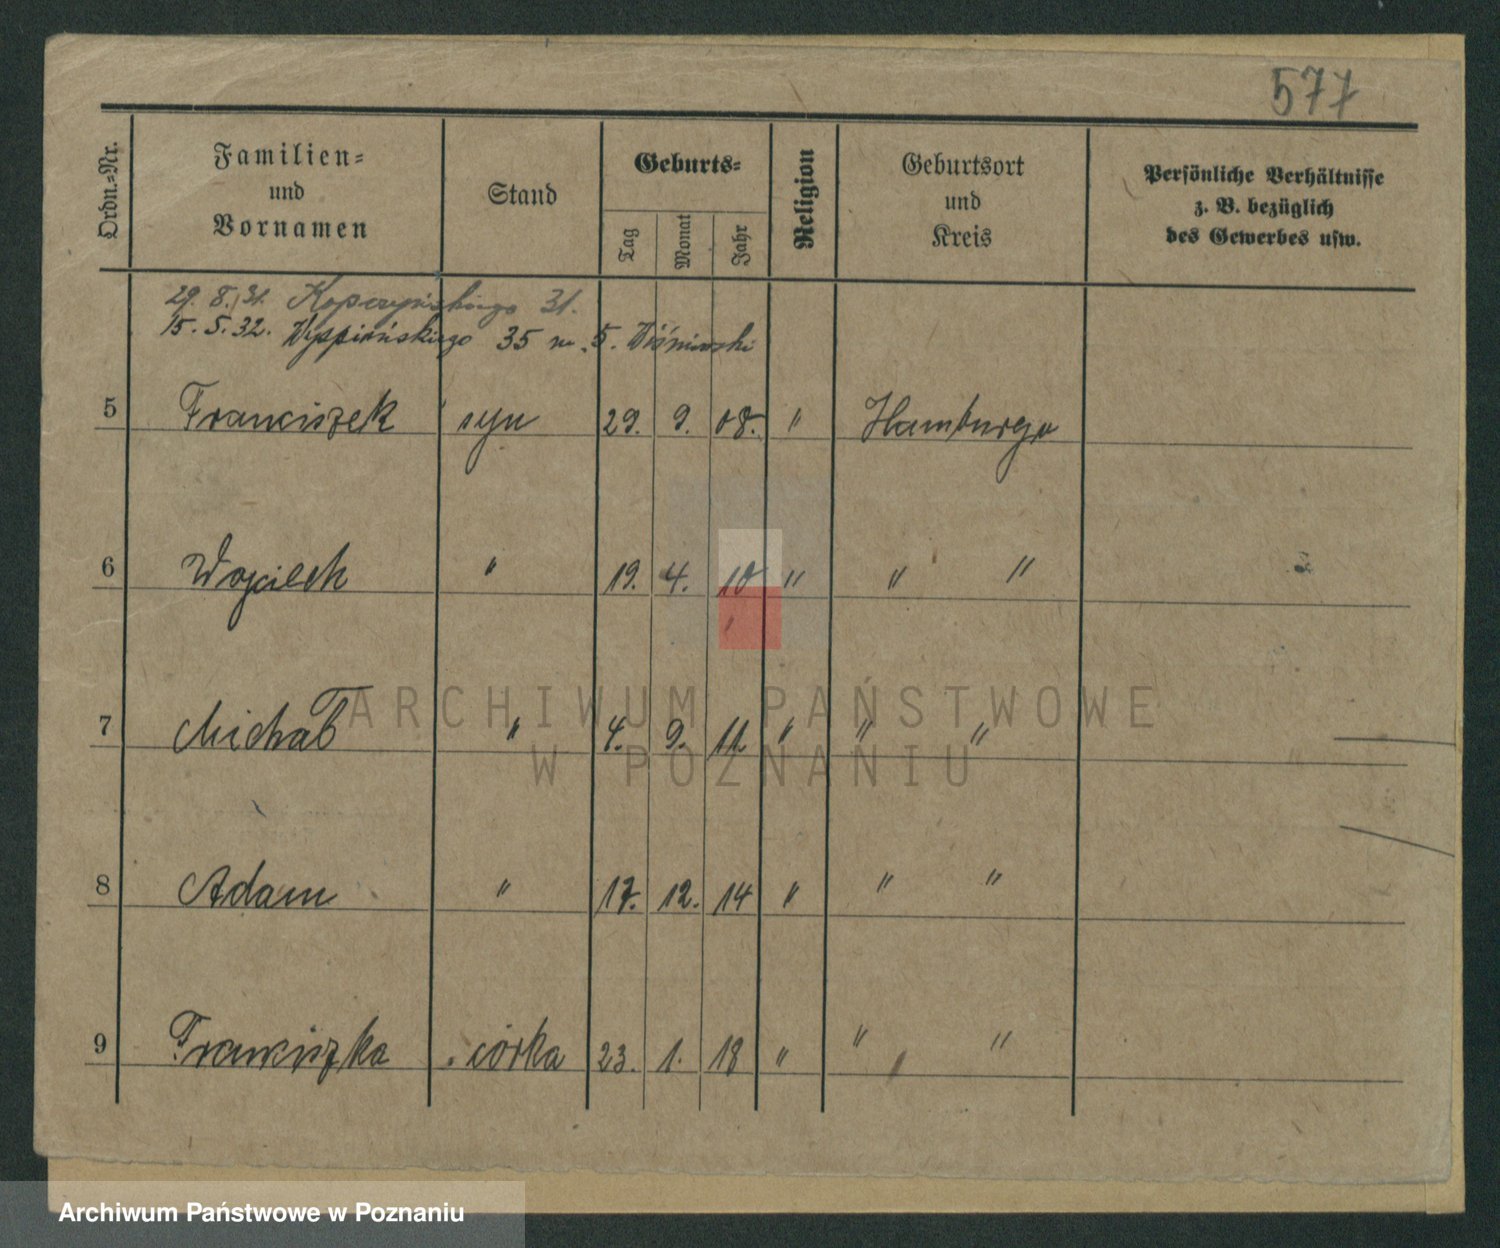 577
Ordn.-Nr.
Familien-
und
Vornamen
Stand
Geburts-
Tag
Monat
Jahr
Religion
Geburtsort
und
Kreis
Persönliche Verhältnisse
z. B. bezüglich
des Gewerbes usw.
29. 8. 31. 31.
15. 5. 32. Wyspiańskiego 35 m. 5. Wiśniewski
5 Franciszek syn 29. 9. 08. " Hamburga
6 Wojciech " 19. 4. 10 " " "
7 Michał " 4. 9. 11. " " "
8 Adam " 17. 12. 14 " " "
9 Franciszka córka 23. 1. 18 " " "
ARCHIWUM PAŃSTWOWE
W POZNANIU
Archiwum Państwowe w Poznaniu